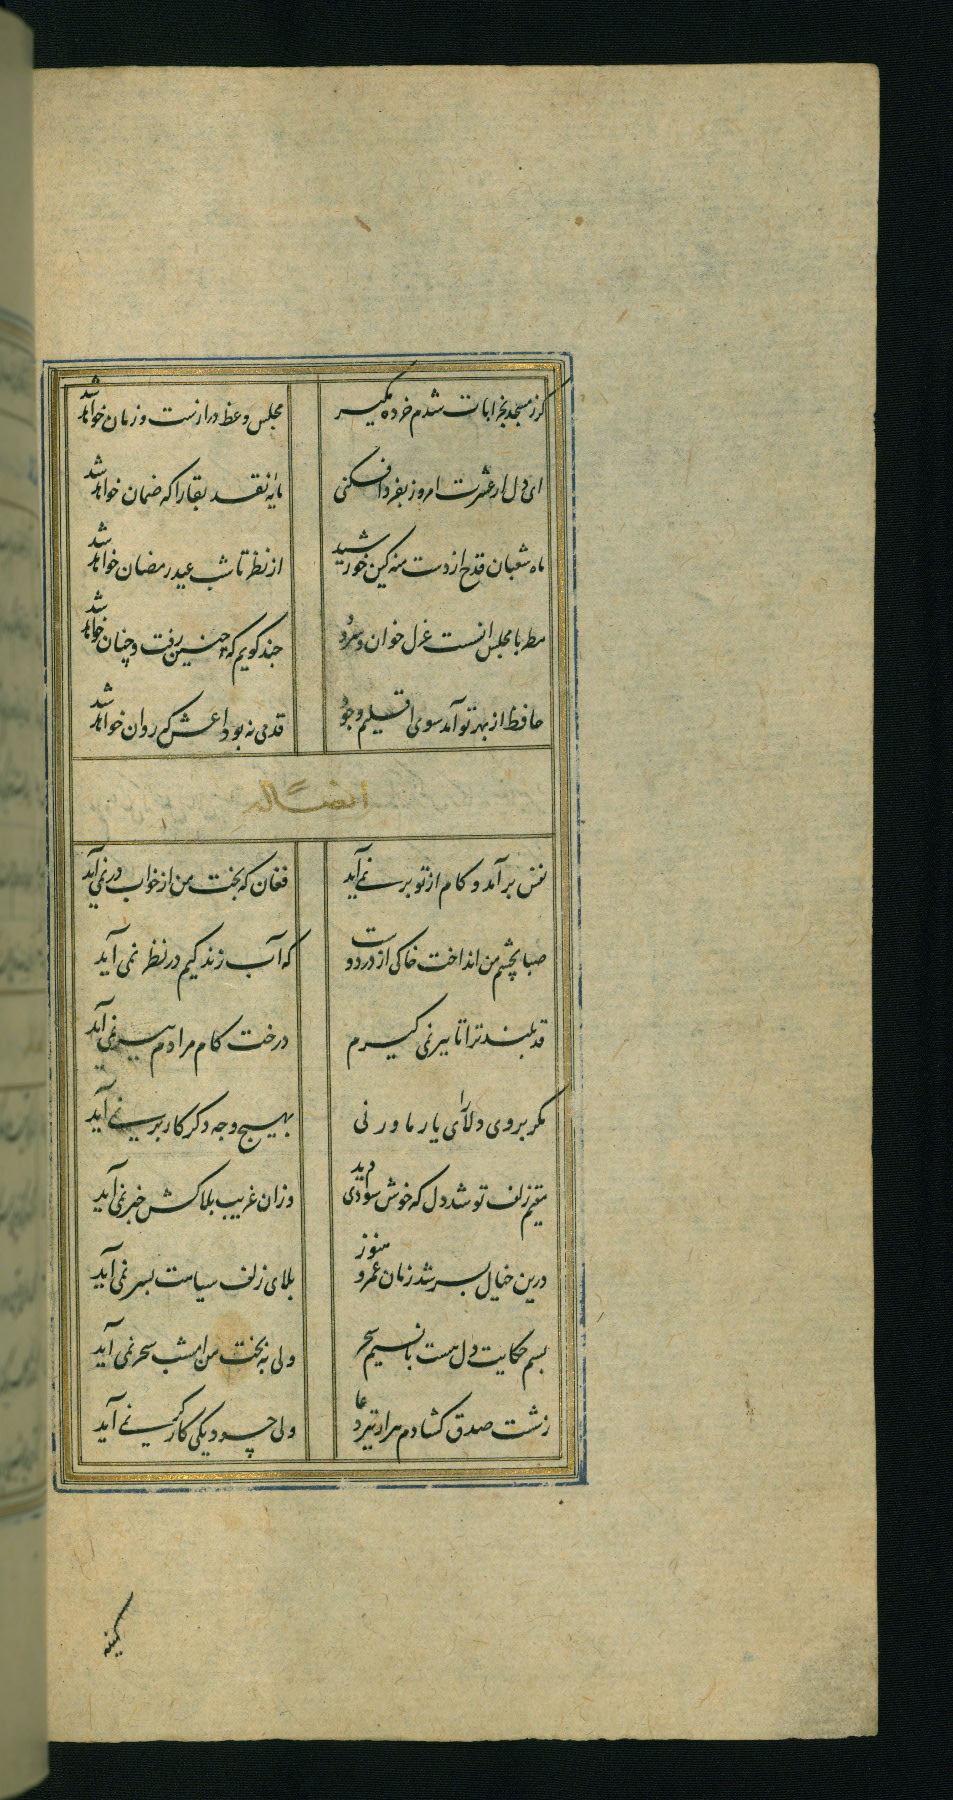 کر ز مسجد بخرابات شدم خرده مکیر
مجلس وعظ درازست و زمان خواهد شد
ای دل ار عشرت امروز بفردا فکنی
مایه نقد بقا را که ضمان خواهد شد
ماه شعبان قدح از دست منه کین خورشید
از نظر تا شب عید رمضان خواهد شد
مطربا مجلس انست غزل خوان و سرود
چند کویم که چنین رفت و چنان خواهد شد
حافظ از بهر تو آمد سوی اقلیم وجود
قدمی نه بوداعش که روان خواهد شد
ایضا له
نفس برآمد و کام از تو بر نمی آید
فغان که بخت من از خواب در نمی آید
صبا بچشم من انداخت خاکی از در دوست
که آب زندکیم در نظر نمی آید
قد بلند ترا تا ببر نمی کیرم
درخت کام مرادم ببر نمی آید
مکر بروی دلارای یار ما ور نی
بهیچ وجه دکر کار بر نمی آید
مقیم زلف تو شد دل که خوش سوادی دید
وزان غریب بلاکش خبر نمی آید
درین خیال بسر شد زمان عمر و هنوز
بلای زلف سیاهت بسر نمی آید
بسم حکایت دل هست با نسیم سحر
ولی به بخت من امشب سحر نمی آید
ز شست صدق کشادم هزار تیر دعا
ولی چه سود یکی کارکر نمی آید
کمینه